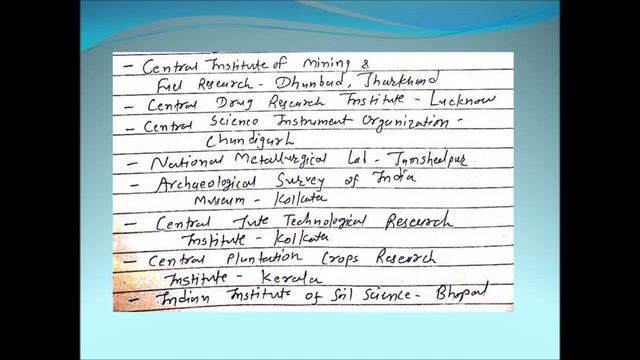 - Central Institute of Mining &
Fuel Research - Dhanbad, Jharkhand
- Central Drug Research Institute - Lucknow
- Central Science Instrument Organization -
Chandigarh
- National Metallurgical Lab - Jamshedpur
- Archaeological Survey of India
Museum - Kolkata
- Central Jute Technological Research
Institute - Kolkata
- Central Plantation Crops Research
Institute - Kerala
- Indian Institute of Soil Science - Bhopal